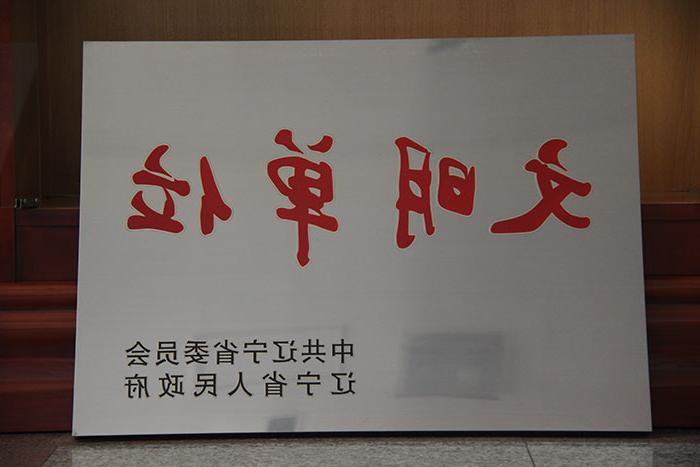 文明单位
中共辽宁省委员会
辽宁省人民政府